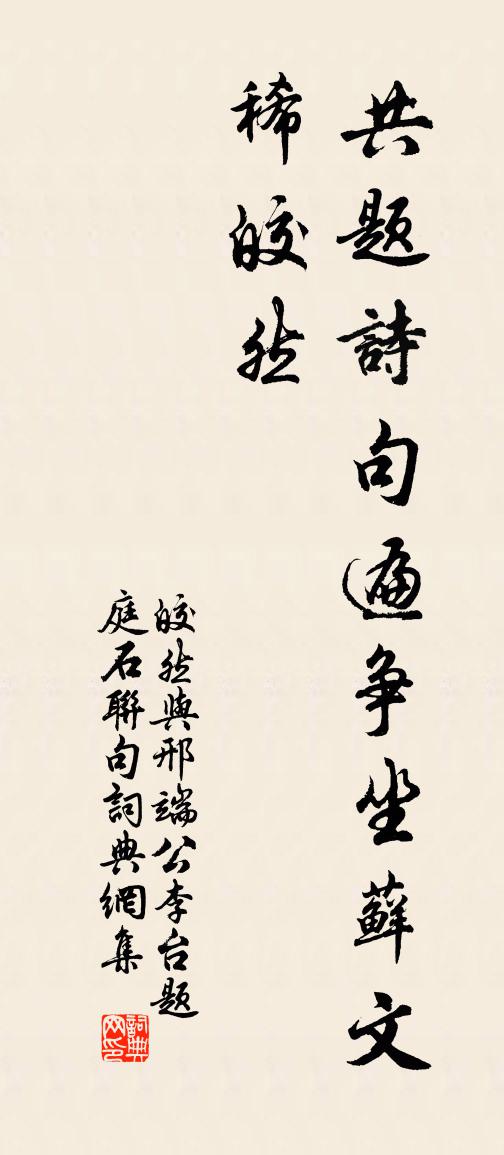 共题詩句遍争坐蘚文
稀皎然
皎然與邢端公李台题
庭石聯句詞典網集
詞典
网印